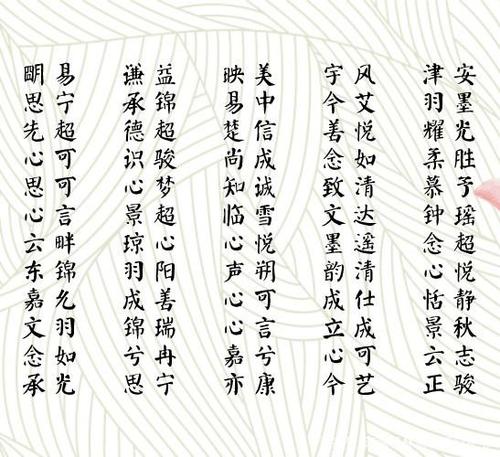 安墨光胜予瑶超悦静秋志骏
津羽耀柔慕钟念心恬景云正
风艾悦如清达遥清仕成可艺
宇今善念致文墨韵成立心今
美中信成诚雪悦朔可言兮康
映易楚尚知临心声心心嘉亦
益锦超骏梦超心阳善瑞冉宁
谦承德识心景琼羽成锦兮思
易宁超可可言畔锦允羽如光
明思先心思心云东嘉文念承